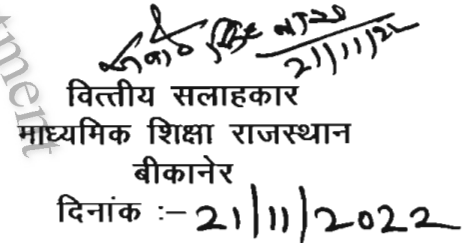 21/11/22
वित्तीय सलाहकार
माध्यमिक शिक्षा राजस्थान
बीकानेर
दिनांक :– 21/11/2022